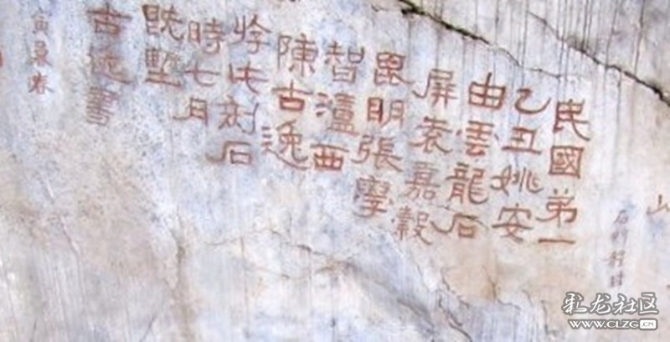 山
民國第一
乙丑姚安
由雲龍石
屏袁嘉穀
昆明張學
智瀘西
陳古逸
伴氏刻石
時七月
既墅
古逸書
寅暮春
彩龙社区
WWW.CLZG.CN